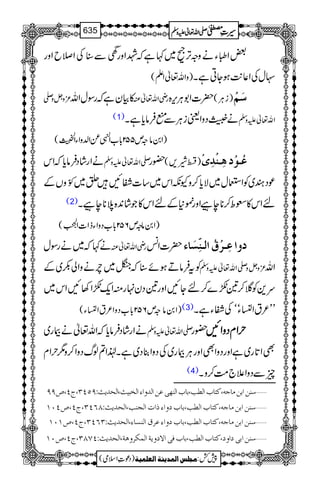 سیرتِ مصطفی صلی اللہ تعالٰی علیہ وسلم 635
بعض اطباء نے وجہ ترجیح میں کہا ہے کہ شہد اور گھی سے اس کی اصلاح اور
اسہال کی اعانت ہو جاتی ہے۔ (واللہ تعالٰی اعلم)
سَمّ (زہر) حضرت ابوہریرہ رضی اللہ تعالٰی عنہ کا بیان ہے کہ رسول اللہ عزوجل و صلی
اللہ تعالٰی علیہ وسلم نے خبیث دوا یعنی زہر سے منع فرمایا ہے۔ (1)
(ابن ماجہ ص ۲۵۵ باب النھی عن الدواء الخبیث)
عُوْدِ ہِنْدِیْ (قسط شیریں) حضور صلی اللہ تعالٰی علیہ وسلم نے ارشاد فرمایا کہ اس
عود ہندی کو دوا میں استعمال کیا کرو کیونکہ اس میں سات شفائیں ہیں حلق میں کوؤں کے
لئے اس کا سعوط کرنا چاہیے اور نمونیا کے لئے اس کا جوشاندہ پلانا چاہیے۔ (2)
(ابن ماجہ ص ۲۵۶ باب دواء ذات الجنب)
دوا عِرْقُ النِّسَاء حضرت انس رضی اللہ تعالٰی عنہ نے کہا کہ میں نے رسول
اللہ عزوجل و صلی اللہ تعالٰی علیہ وسلم کو یہ فرماتے ہوئے سنا کہ جنگل میں چرنے والی بکری کے
سرین کو گلا کر تین ٹکڑے کر لئے جائیں اور تین دن نہار منہ ایک ٹکڑا کھائیں اس میں
”عرق النساء“ کی شفاء ہے۔ (3) (ابن ماجہ ص ۲۵۶ باب دواء عرق النساء)
حرام دوائیں حضور صلی اللہ تعالٰی علیہ وسلم نے ارشاد فرمایا ہے کہ اللہ تعالٰی نے بیماری
بھی اتاری ہے اور دوا بھی اور ہر بیماری کی دوا بنا دی ہے۔ لہٰذا تم لوگ دوا کرو مگر حرام
چیز سے دوا علاج مت کرو۔ (4)
سنن ابن ماجہ،کتاب الطب،باب النھی عن الدواء الخبیث،الحدیث:۳۴۵۹،ج۴،ص۹۹
سنن ابن ماجہ،کتاب الطب،باب دواء ذات الجنب،الحدیث:۳۴۶۸،ج۴،ص۱۰۴
سنن ابن ماجہ،کتاب الطب،باب دواء عرق النساء،الحدیث:۳۴۶۳،ج۴،ص۱۰۱
سنن ابی داود،کتاب الطب،باب فی الادویة المکروھة،الحدیث:۳۸۷۴،ج۴،ص۱۰
پیش کش: مجلس المدینة العلمیة (دعوتِ اسلامی)